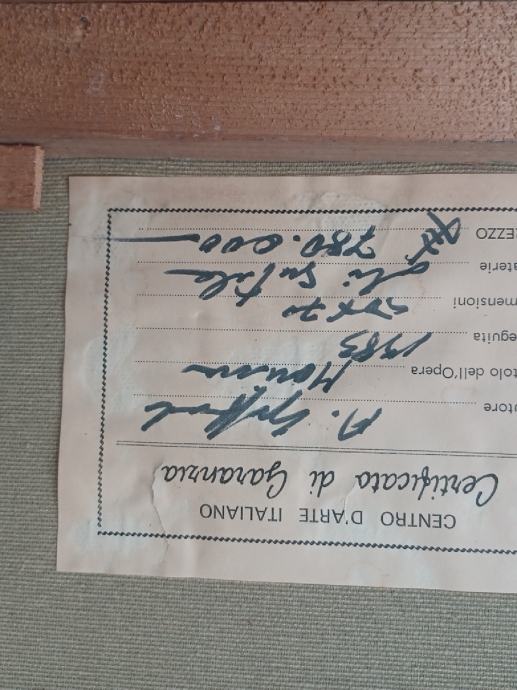 CENTRO D'ARTE ITALIANO
Certificato di Garanzia
utore A.
tolo dell'Opera
eguita 1983
mensioni 50x70
aterie olio su tela
EZZO 780.000